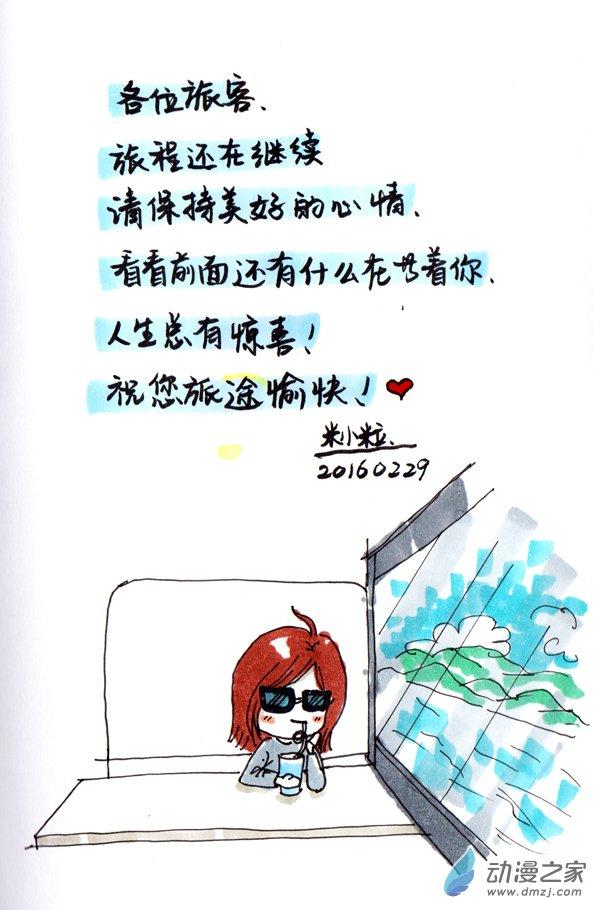 各位旅客、
旅程还在继续
请保持美好的心情、
看看前面还有什么在等着你、
人生总有惊喜！
祝您旅途愉快！
米小粒、
20160229
动漫之家
www.dmzj.com